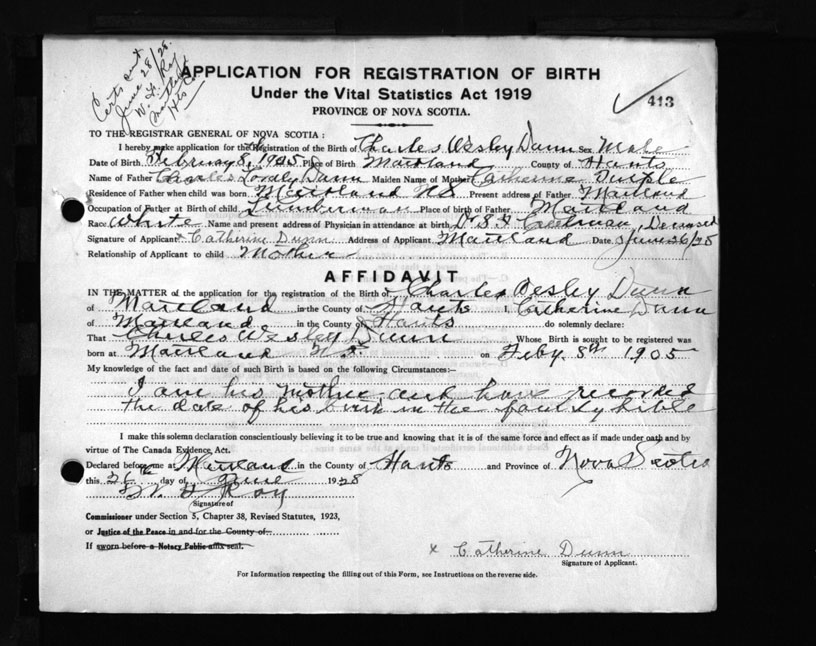 Certs sent
June 28/28.
W. H. Roy
Maitland
Hts Co.
APPLICATION FOR REGISTRATION OF BIRTH
Under the Vital Statistics Act 1919
PROVINCE OF NOVA SCOTIA.
413
TO THE REGISTRAR GENERAL OF NOVA SCOTIA :
I hereby make application for the Registration of the Birth of Charles Wesley Dunn Sex Male
Date of Birth February 8, 1905 Place of Birth Maitland County of Hants
Name of Father Charles Dunn Maiden Name of Mother Catherine
Residence of Father when child was born Maitland NS Present address of Father Maitland
Occupation of Father at Birth of child Lumberman Place of birth of Father Maitland
Race White Name and present address of Physician in attendance at birth Dr Deceased
Signature of Applicant x Catherine Dunn Address of Applicant Maitland Date June 26/28
Relationship of Applicant to child Mother
AFFIDAVIT
IN THE MATTER of the application for the registration of the Birth of Charles Wesley Dunn
of Maitland in the County of Hants I, Catherine Dunn
of Maitland in the County of Hants do solemnly declare:
That Charles Wesley Dunn Whose Birth is sought to be registered was
born at Maitland N.S. on Feby. 8th 1905
My knowledge of the fact and date of such Birth is based on the following Circumstances:—
I am his Mother and have recorded
the date of his birth in the family bible
I make this solemn declaration conscientiously believing it to be true and knowing that it is of the same force and effect as if made under oath and by
virtue of The Canada Evidence, Act.
Declared before me at Maitland in the County of Hants and Province of Nova Scotia
this 26th day of June 1928
W. H. Roy
Signature of
Commissioner under Section 5, Chapter 38, Revised Statutes, 1923,
or Justice of the Peace in and for the County of
If sworn before a Notary Public affix seal.
x Catherine Dunn
Signature of Applicant.
For Information respecting the filling out of this Form, see Instructions on the reverse side.